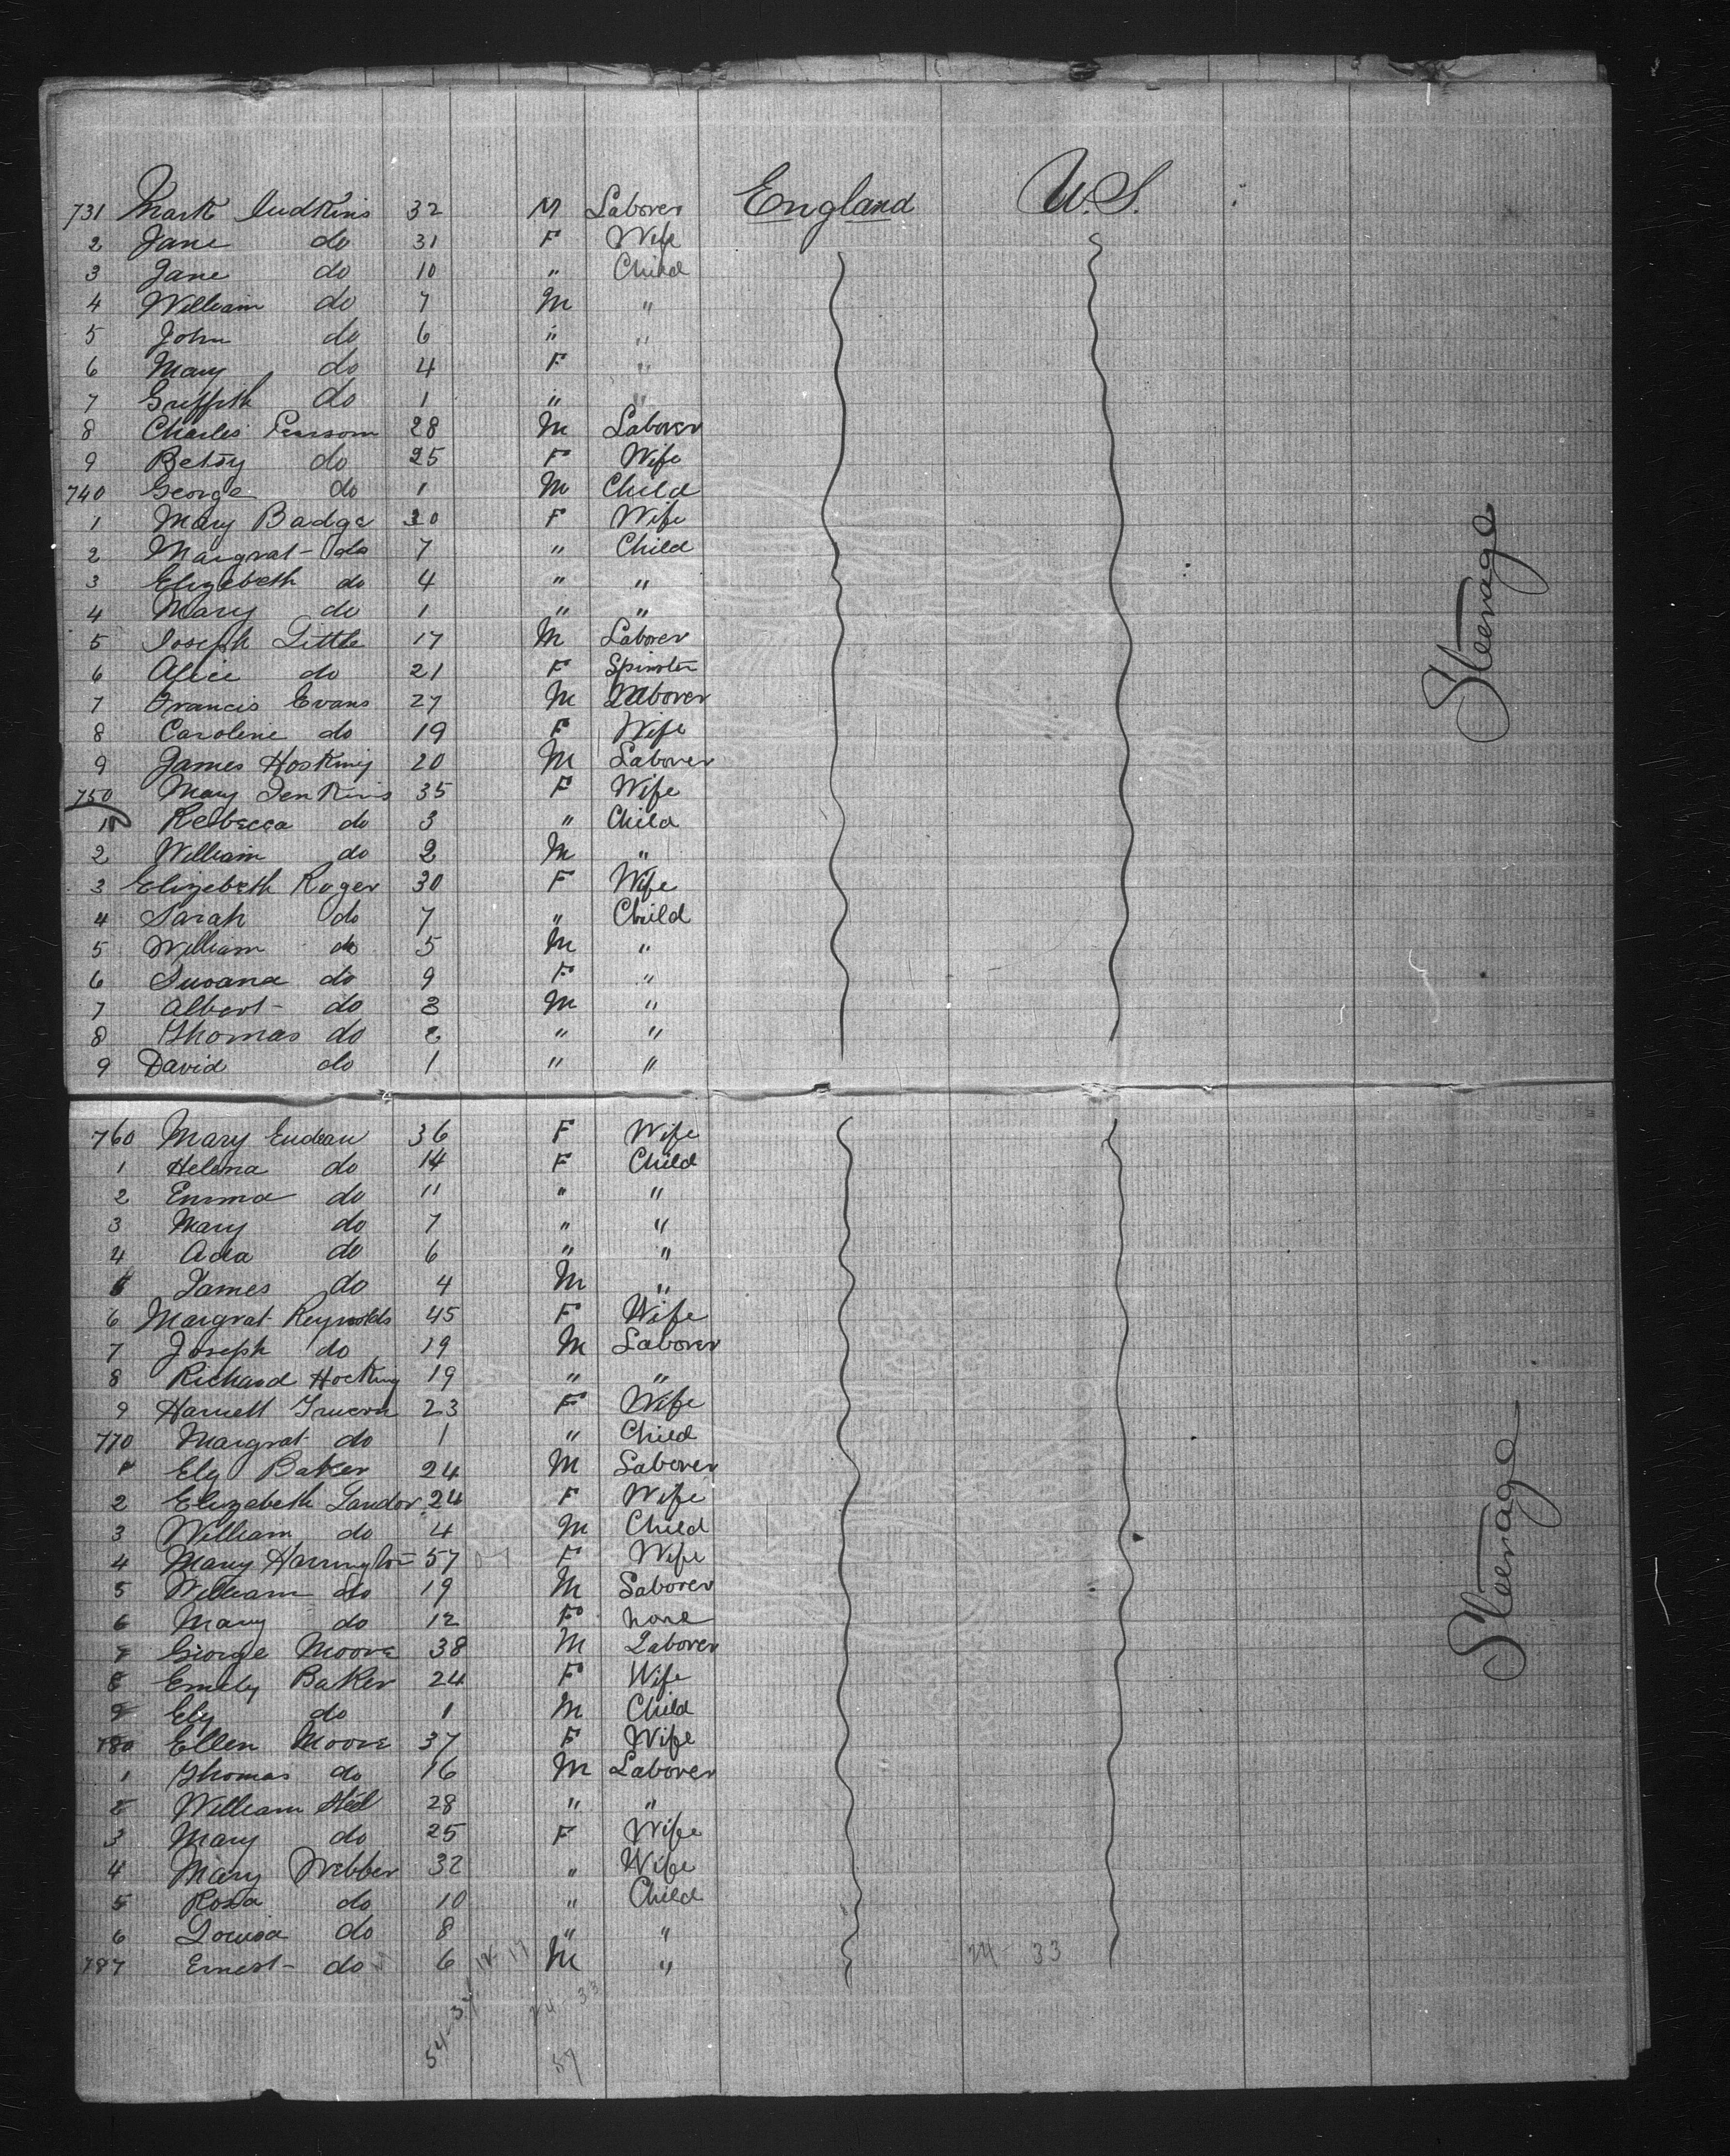 731 Mark Judkins 32 M Laborer England U.S.
2 Jane do 31 F Wife
3 Jane do 10 " Child
4 William do 7 M "
5 John do 6 " "
6 Mary do 4 F "
7 Griffith do 1 " "
8 Charles Pearson 28 M Laborer
9 Betsy do 25 F Wife
740 George do 1 M Child
1 Mary Badge 30 F Wife
2 Margrat do 7 " Child
3 Elizebeth do 4 " "
4 Mary do 1 " "
5 Joseph Little 17 M Laborer
6 Alice do 21 F Spinster
7 Francis Evans 27 M Laborer
8 Caroline do 19 F Wife
9 James Hosking 20 M Laborer
750 Mary Jenkins 35 F Wife
1 Rebecca do 3 " Child
2 William do 2 M "
3 Elizebeth Roger 30 F Wife
4 Sarah do 7 " Child
5 William do 5 M "
6 Susana do 9 F "
7 Albert do 3 M "
8 Thomas do 2 " "
9 David do 1 " "
Steerage
760 Mary Eudean 36 F Wife
1 Helena do 14 F Child
2 Emma do 11 " "
3 Mary do 7 " "
4 Ada do 6 " "
5 James do 4 M "
6 Margrat Reynolds 45 F Wife
7 Joseph do 19 M Laborer
8 Richard Hocking 19 " "
9 Harriett 23 F Wife
770 Margrat do 1 " Child
1 Ely Baker 24 M Laborer
2 Elizabeth Landor 24 F Wife
3 William do 4 M Child
4 Mary Harrington 57 F Wife
5 William do 19 M Laborer
6 Mary do 12 F none
7 George Moore 38 M Laborer
8 Emily Baker 24 F Wife
9 Ely do 1 M Child
780 Ellen Moore 37 F Wife
1 Thomas do 16 M Laborer
2 William Steel 28 " "
3 Mary do 25 F Wife
4 Mary Webber 32 " Wife
5 Rosa do 10 " Child
6 Louisa do 8 " "
787 Ernest do 6 M "
Steerage
24 - 33
24 33
54-34
57